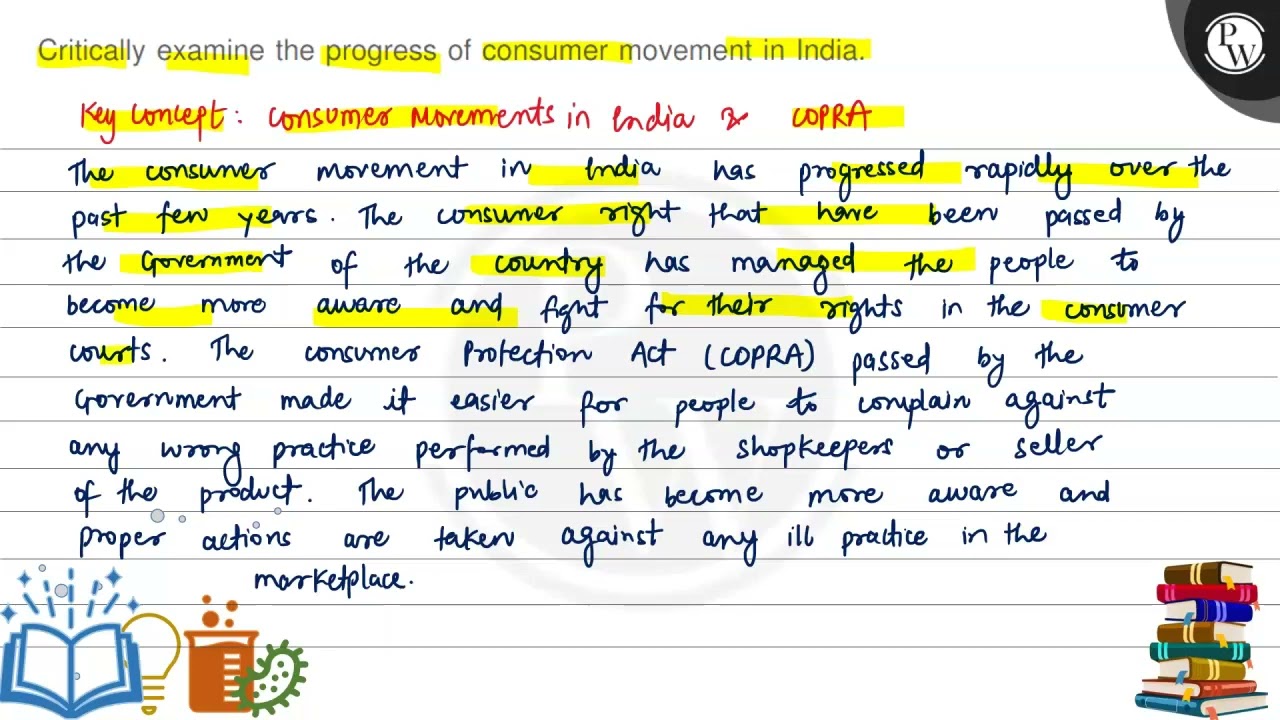 Critically examine the progress of consumer movement in India.
PW
Key Concept: Consumer Movements in India & COPRA
The consumer movement in India has progressed rapidly over the
past few years. The consumer right that have been passed by
the Government of the country has managed the people to
become more aware and fight for their rights in the consumer
courts. The consumer Protection Act (COPRA) passed by the
Government made it easier for people to complain against
any wrong practice performed by the shopkeepers or seller
of the product. The public has become more aware and
proper actions are taken against any ill practice in the
marketplace.